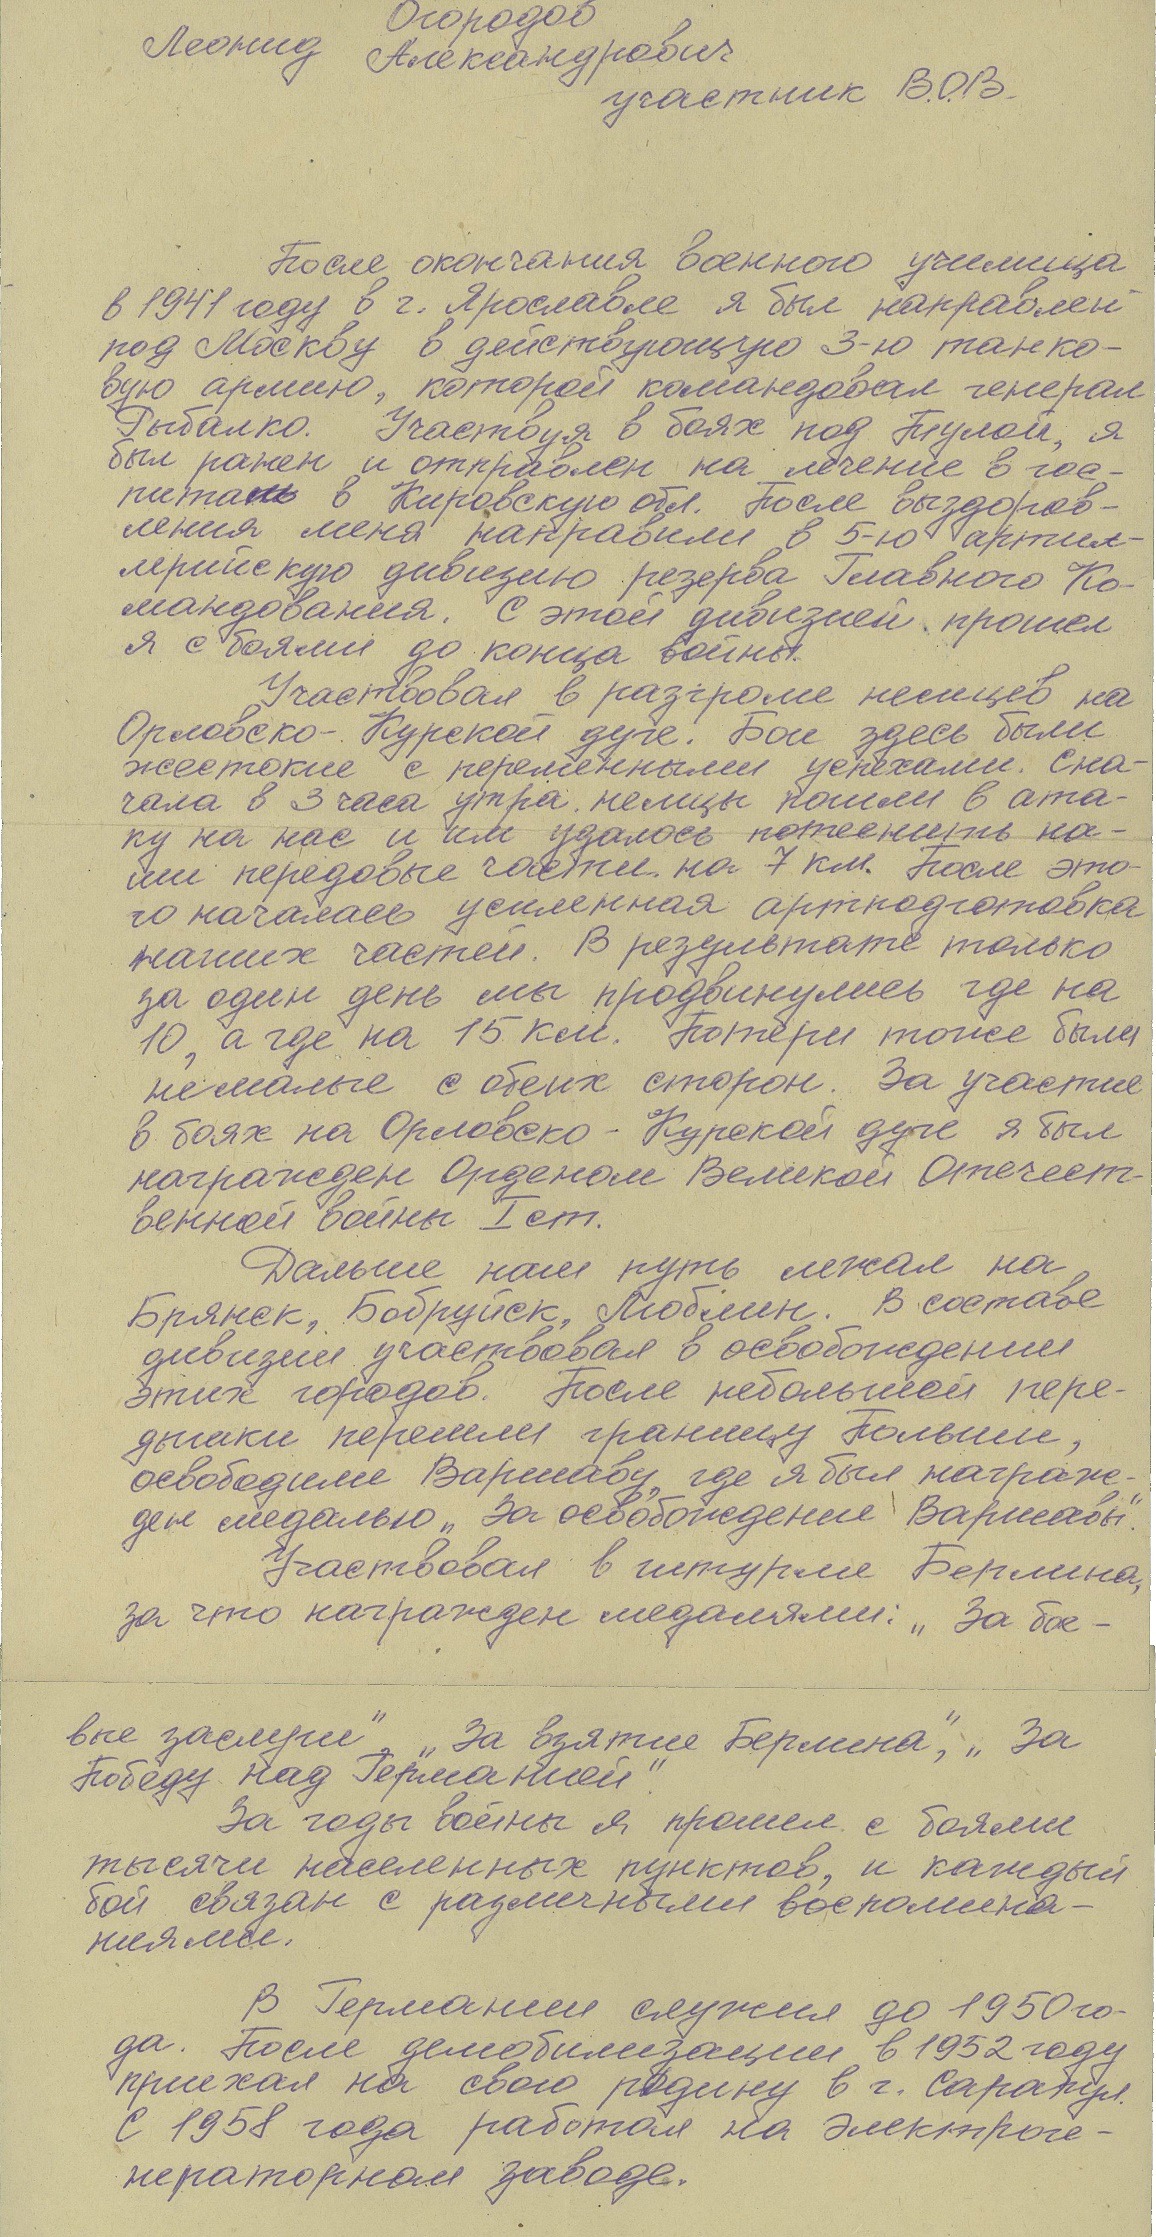 Огородов
Леонид Александрович
участник В.О.В.
После окончания военного училища
в 1941 году в г. Ярославле я был направлен
под Москву в действующую 3-ю танко-
вую армию, которой командовал генерал
Рыбалко. Участвуя в боях под Тулой, я
был ранен и отправлен на лечение в гос-
питаль в Кировскую обл. После выздоров-
ления меня направили в 5-ю артил-
лерийскую дивизию резерва Главного Ко-
мандования. С этой дивизией прошел
я с боями до конца войны.
Участвовал в разгроме немцев на
Орловско-Курской дуге. Бои здесь были
жестокие с переменными успехами. Сна-
чала в 3 часа утра немцы пошли в ата-
ку на нас и им удалось потеснить на-
ши передовые части на 7 км. После это-
го началась усиленная артподготовка
наших частей. В результате только
за один день мы продвинулись где на
10, а где на 15 км. Потери тоже были
немалые с обеих сторон. За участие
в боях на Орловско-Курской дуге я был
награжден Орденом Великой Отечест-
венной войны I ст.
Дальше наш путь лежал на
Брянск, Бобруйск, Люблин. В составе
дивизии участвовал в освобождении
этих городов. После небольшой пере-
дышки перешли границу Польши,
освободили Варшаву, где я был награж-
ден медалью „За освобождение Варшавы".
Участвовал в штурме Берлина,
за что награжден медалями: „За бое-
вые заслуги", „За взятие Берлина", „За
Победу над Германией".
За годы войны я прошел с боями
тысячи населенных пунктов, и каждый
бой связан с различными воспомина-
ниями.
В Германии служил до 1950 го-
да. После демобилизации в 1952 году
приехал на свою родину в г. Сарапул.
С 1958 года работал на электроге-
нераторном заводе.